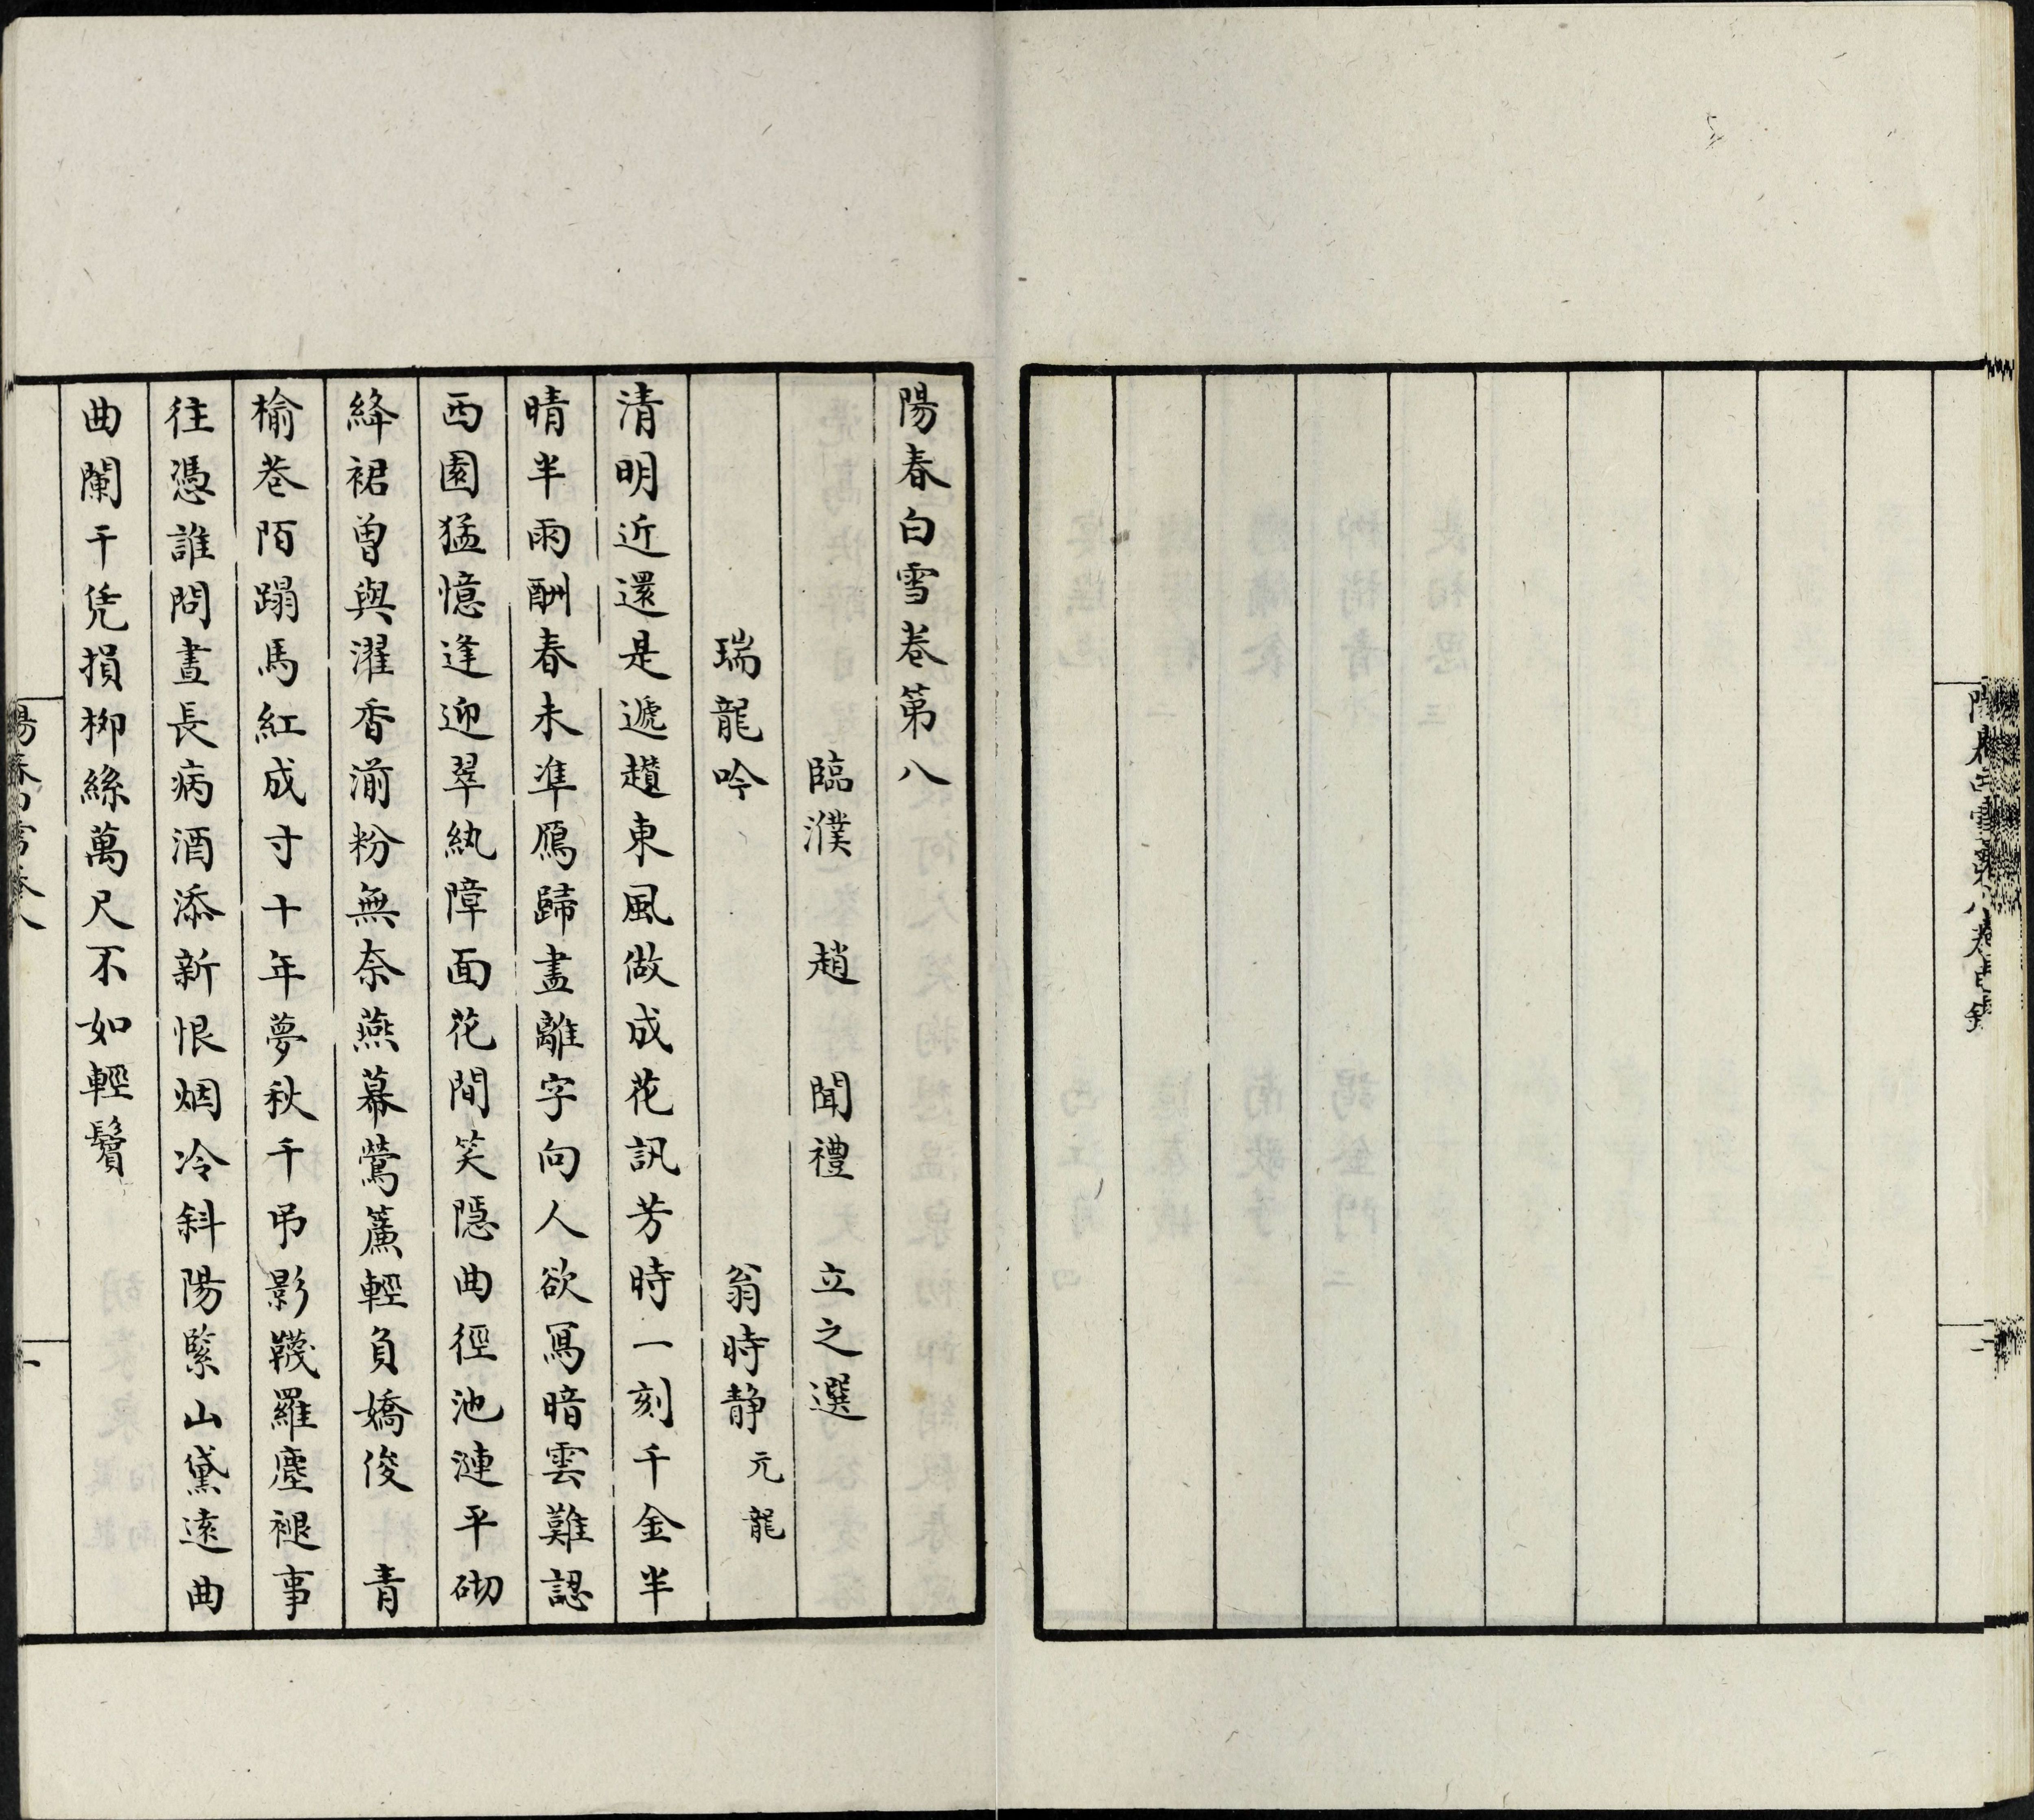 陽春白雪卷第八
臨濮 趙 聞禮 立之選
瑞龍吟 翁時静 元龍
清明近還是遞趲東風做成花訊芳時一刻千金半
晴半雨酬春未準鴈歸盡離字向人欲寫暗雲難認
西園猛憶逢迎翠紈障面花間笑隱曲徑池漣平砌
絳裙曾與濯香湔粉無奈燕幕鶯簾輕負嬌俊 青
榆巷陌蹋馬紅成寸十年夢秋千吊影韈羅塵褪事
往憑誰問晝長病酒添新恨烟冷斜陽緊山黛遠曲
曲闌干凭損柳絲萬尺不如輕鬢
陽春白雪卷八
一